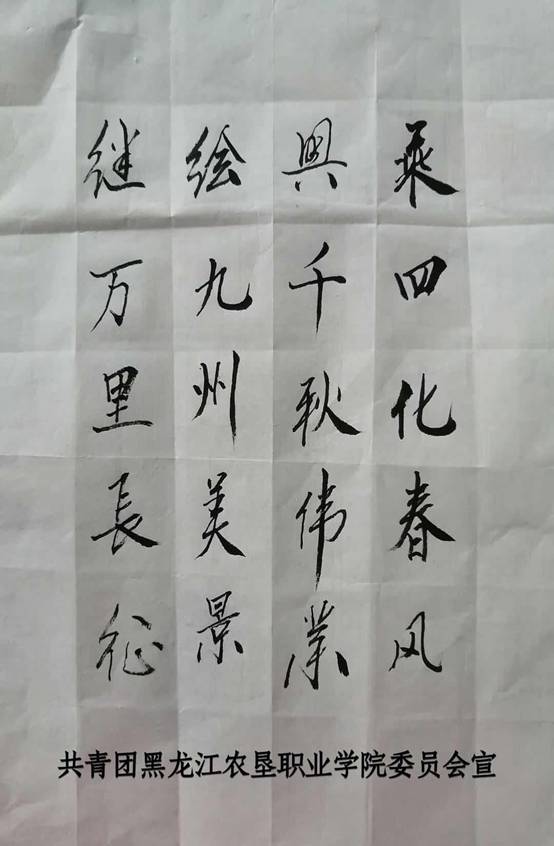 乘四化春风
興千秋伟業
绘九州美景
继万里長征
共青团黑龙江农垦职业学院委员会宣